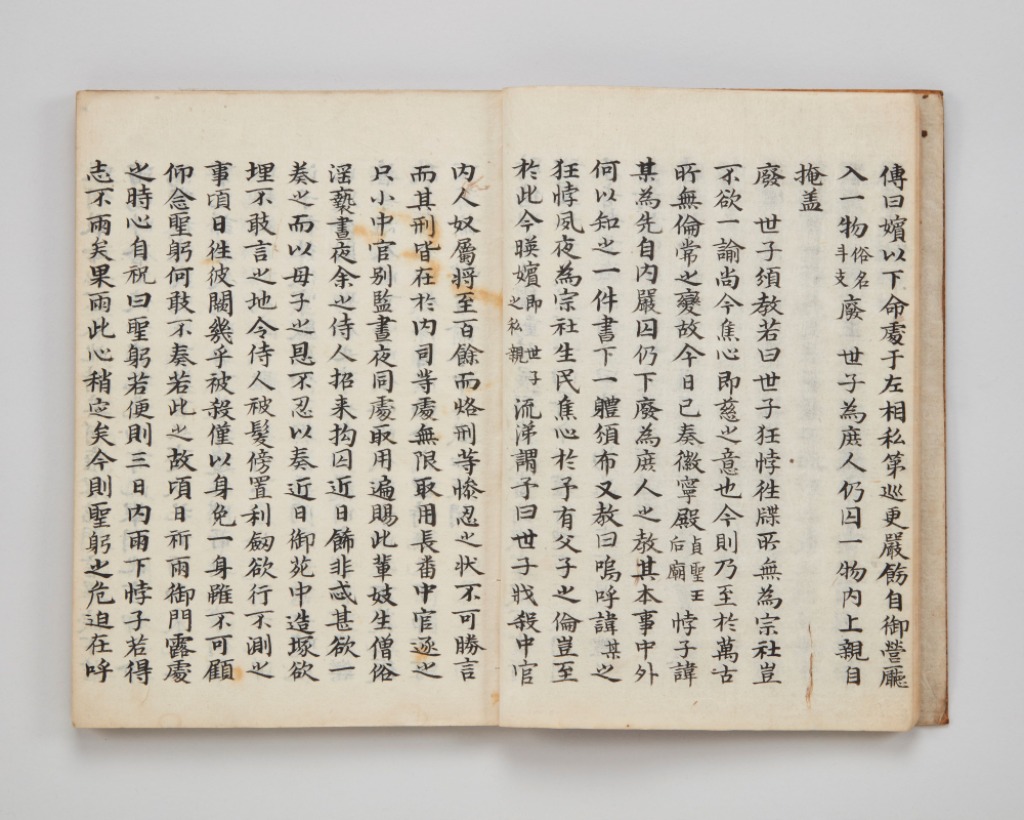 傳曰嬪以下命處于左相私第巡更嚴飭自御營廳
入一物俗名斗支廢　世子為庶人仍囚一物內上親自
掩盖
廢　世子須教若曰世子狂悖徃牒所無為宗社豈
不欲一諭尚今焦心即慈之意也今則乃至於萬古
所無倫常之變故今日已奏徽寧殿貞聖王后廟　悖子諱
某為先自內嚴囚仍下廢為庶人之教其本事中外
何以知之一件書下一體須布又教曰嗚呼諱某之
狂悖夙夜為宗社生民焦心於予有父子之倫豈至
於此今暎嬪即　世子之私親　流涕謂予曰世子戕殺中官
內人奴屬將至百餘而烙刑等慘忍之狀不可勝言
而其刑皆在於內司等處無限取用長番中官逐之
只小中官別監晝夜同處取用遍賜此輩妓生僧俗
淫褻晝夜余之侍人招来拘囚近日飾非忒甚欲一
奏之而以母子之恩不忍以奏近日御苑中造塚欲
埋不敢言之地今侍人被髮傍置利劒欲行不測之
事頃日徃彼闕幾乎被殺僅以身免一身雖不可顧
仰念聖躬何敢不奏若此之故頃日祈雨御門露處
之時心自祝曰聖躬若便則三日內雨下悖子若得
志不雨矣果雨此心稍定矣今則聖躬之危迫在呼